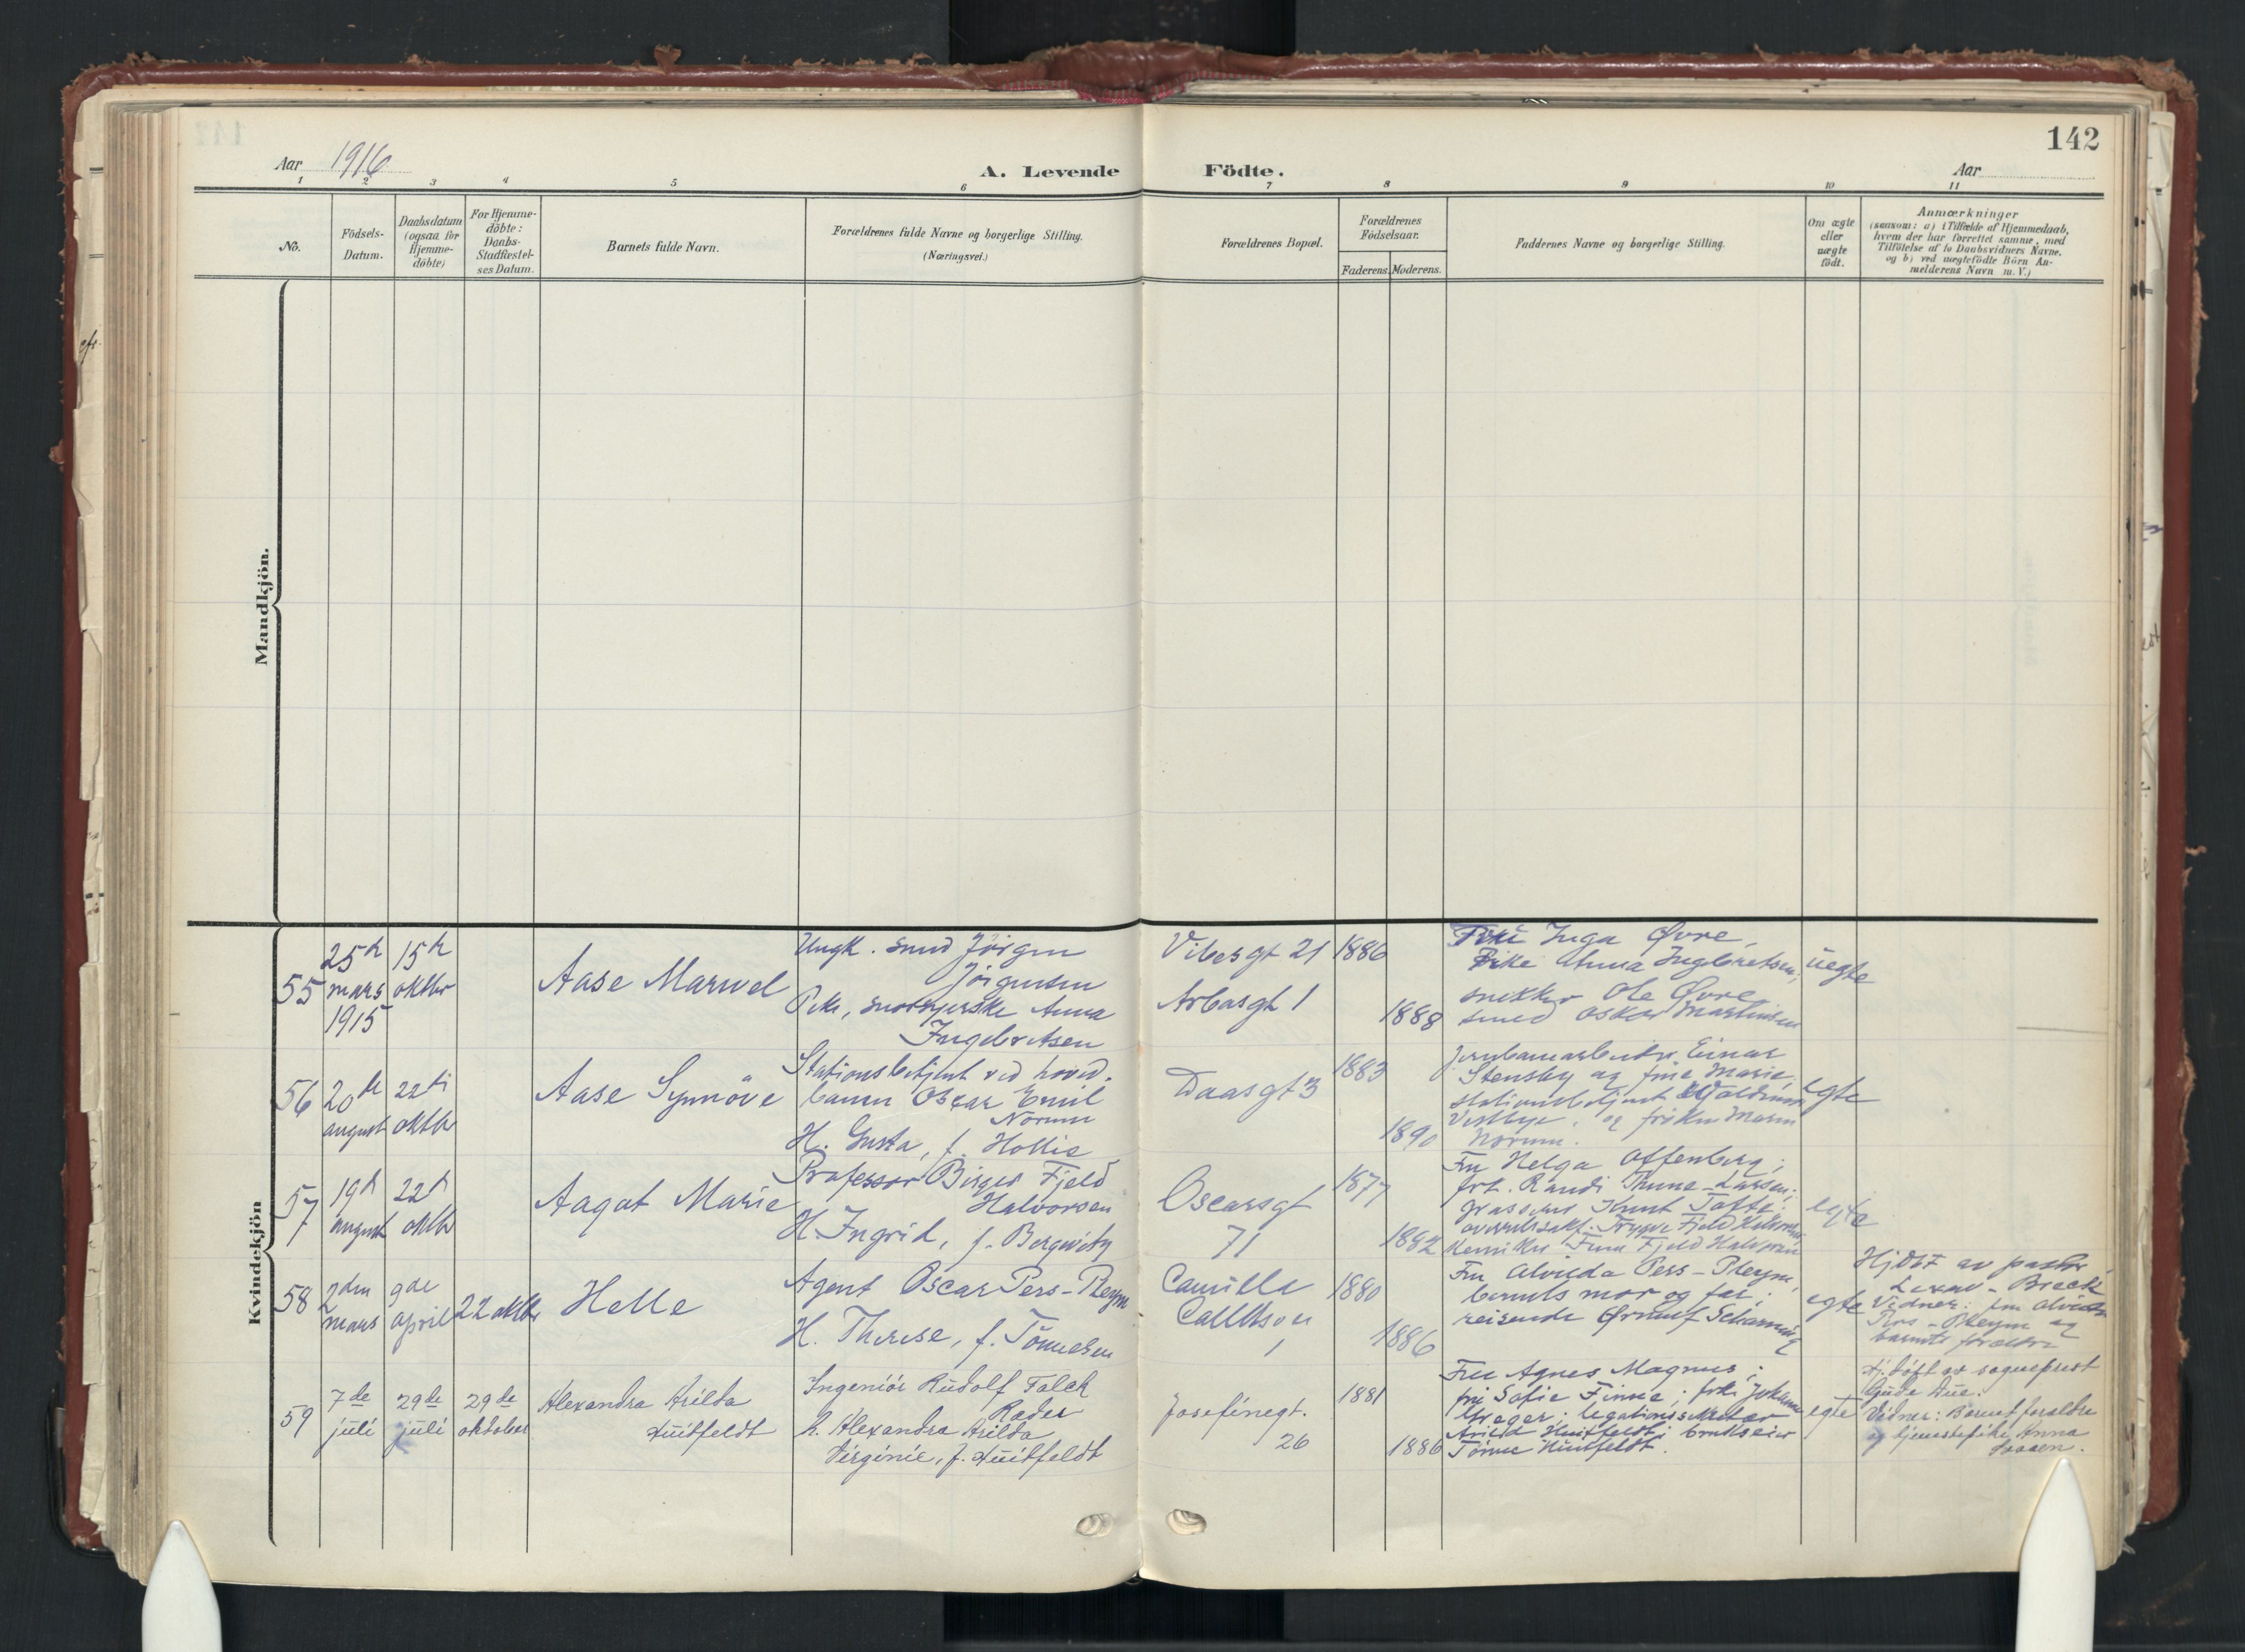 142
Aar 1916
A. Levende Födte.
Aar
1 2 3 4 5 6 7 8 9 10 11
No.
Födsels-
Datum.
Daabsdatum
(ogsaa for
Hjemme-
döbte)
For Hjemme-
döbte:
Daabs-
Stadfæstel-
ses Datum.
Barnets fulde Navn.
Forældrenes fulde Navne og borgerlige Stilling.
(Næringsvei.)
Forældrenes Bopæl.
Forældrenes
Födselsaar.
Faderens. Moderens.
Faddernes Navne og borgerlige Stilling.
Om ægte
eller
uægte
födt.
Anmærkninger
(saasom: a) i Tilfælde af Hjemmedaab,
hvem der har forrettet samme, med
Tilföielse af to Daabsvidners Navne,
og b) ved uægtefödte Börn An-
melderens Navn m. V.)
Mandkjön.
Kvindekjön
55
25de
mars
1915
15de
oktbr
Aase Marvel
Ungk. smed Jörgen
Jörgensen
Pike, Anna
Ingebretsen
Vibesgt 21
Arbosgt 1
1886
1888
Pike Inga Øvre,
Pike Anna Ingebretsen,
snekker Ole Øvre
smed Oskar Martinsen
uegte
56
20de
august
22de
oktbr
Aase Synnöve
Stationsbetjent ved hoved-
banen Oscar Emil
Norum
H. Gusta, f. Hollis
Daasgt 3
1883
1890
Jernbanearbeider Einar
Stensby og frue Marie,
stationsbetjent Waldemar
Vestbye, og frøken Maren
Norum.
egte
57
19de
august
22de
oktbr
Aagot Marie
Professor Birger Fjeld
Halvorsen
H. Ingrid, f. Bergwitz
Oscarsgt
71
1877
1882
Fru Helga Offenberg;
frk. Randi Thune-Larsen;
grosserer Knut Tofte;
overretssakf. Trygve Fjeld Halvorsen
Fjeld Halvorsen
egte
58
2den
mars
9de
april
22 oktbr
Helle
Agent Oscar Pers-Pleym
H. Therese, f. Tönnesen
Camilla
Colletts vei
1
1880
1886
Fru Alvilda Pers-Pleym,
barnets mor og far;
reisende Ørnulf Schanning
egte
Hj.döbt av pastor
Lexow-Breck
Vidner: fru Alvilda
Pers-Pleym og
barnets foreldre
59
7de
juli
29de
juli
29de
oktober
Alexandra Arilda
Huitfeldt
Ingeniör Rudolf Falck
Rader
H. Alexandra Arilda
Virginie, f. Huitfeldt
Josefinegt.
26
1881
1886
Fru Agnes Magnus;
frk Sofie Finne; frk. Johanne
Kreger; legationssekretær
Arild Huitfeldt; brukseier
Tönne Huitfeldt.
egte
Hj. döpt av sogneprest
Gude Due.
Vidner: Barnets foreldre
og tjenestepike Anna